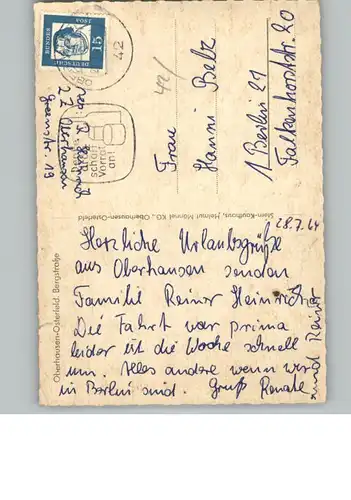 28.7.64
Herzliche Urlaubsgrüße
aus Oberhausen senden
Familie Reiner Heinrich
Die Fahrt war prima
leider ist die Woche schnell
um. Alles andere wenn wir
in Berlin sind. Gruß Renate
und Reiner
Frau
Hanni Belz
1 Berlin 21
Falkenhorststr. 20
42/
42
15
DEUTSCHE
BUNDES
POST
schaff
Vorrat
an!
Oberhausen
Stern-Kaufhaus, Helmut Männel KG., Oberhausen-Osterfeld
Oberhausen-Osterfeld. Bergstraße